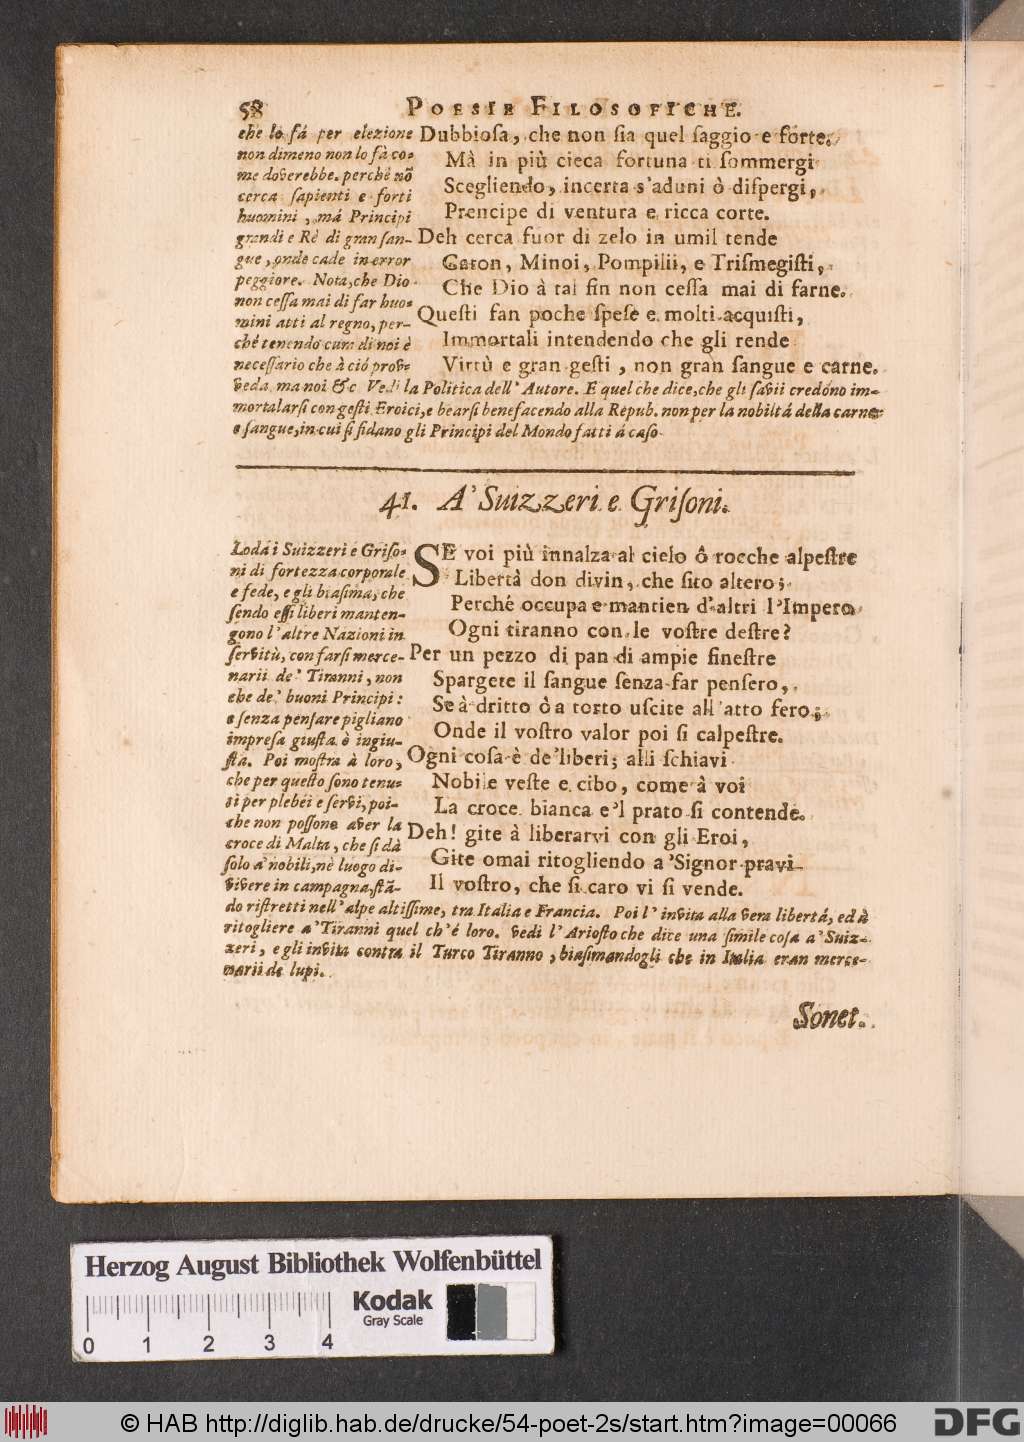 58 POESIE FILOSOFICHE.
che lo fá per elezione
non dimeno non lo fà co-
me doverebbe. perchè nō
cerca sapienti e forti
huomini, má Principi
grandi e Rè di gran san-
gue, onde cade in error
peggiore. Nota, che Dio
non cessa mai di far huo-
mini atti al regno, per-
ché tenendo cum di noi è
necessario che à ció prov-
veda, ma noi &c. Vedi la Politica dell' Autore. E quel che dice, che gli savii credono im-
mortalarsi con gesti Eroici, e bearsi benefacendo alla Repub. non per la nobiltá della carne
e sangue, in cui si fidano gli Principi del Mondo fatti á caso.
Dubbiosa, che non sia quel saggio e forte.
Mà in più cieca fortuna ti sommergi
Scegliendo, incerta s'aduni ò dispergi,
Prencipe di ventura e ricca corte.
Deh cerca fuor di zelo in umil tende
Caton, Minoi, Pompilii, e Trismegisti,
Che Dio à tal fin non cessa mai di farne.
Questi fan poche spese e molti acquisti,
Immortali intendendo che gli rende
Virtù e gran gesti, non gran sangue e carne.
41. A' Suizzeri e Grisoni.
Loda i Suizzeri e Griso-
ni di fortezza corporale
e fede, e gli biasima, che
sendo essi liberi manten-
gono l'altre Nazioni in
servitù, con farsi merce-
narii de' Tiranni, non
che de' buoni Principi:
e senza pensare pigliano
impresa giusta è ingiu-
sta. Poi mostra à loro,
che per questo sono tenu-
ti per plebei e servi, poi-
che non possono aver la
croce di Malta, che si dà
solo a' nobili, nè luogo di
vivere in campagna, stā-
do ristretti nell' alpe altissime, tra Italia e Francia. Poi l' invita alla vera libertá, ed à
ritogliere a' Tiranni quel ch' é loro. Vedi l' Ariosto che dice una simile cosa a' Suiz-
zeri, e gli invita contra il Turco Tiranno, biasimandogli che in Italia eran merce-
narii de lupi.
SE voi più innalza al cielo ô rocche alpestre
Libertâ don divin, che sito altero;
Perché occupa e mantien d'altri l'Impero
Ogni tiranno con le vostre destre?
Per un pezzo di pan di ampie finestre
Spargete il sangue senza far pensero,
Se à dritto ô a torto uscite all'atto fero;
Onde il vostro valor poi si calpestre.
Ogni cosa è de'liberi; alli schiavi
Nobile veste e cibo, come à voi
La croce bianca e'l prato si contende.
Deh! gite à liberarvi con gli Eroi,
Gite omai ritogliendo a'Signor pravi
Il vostro, che si caro vi si vende.
Sonet.
Herzog August Bibliothek Wolfenbüttel
Kodak
Gray Scale
0 1 2 3 4
© HAB http://diglib.hab.de/drucke/54-poet-2s/start.htm?image=00066
DFG